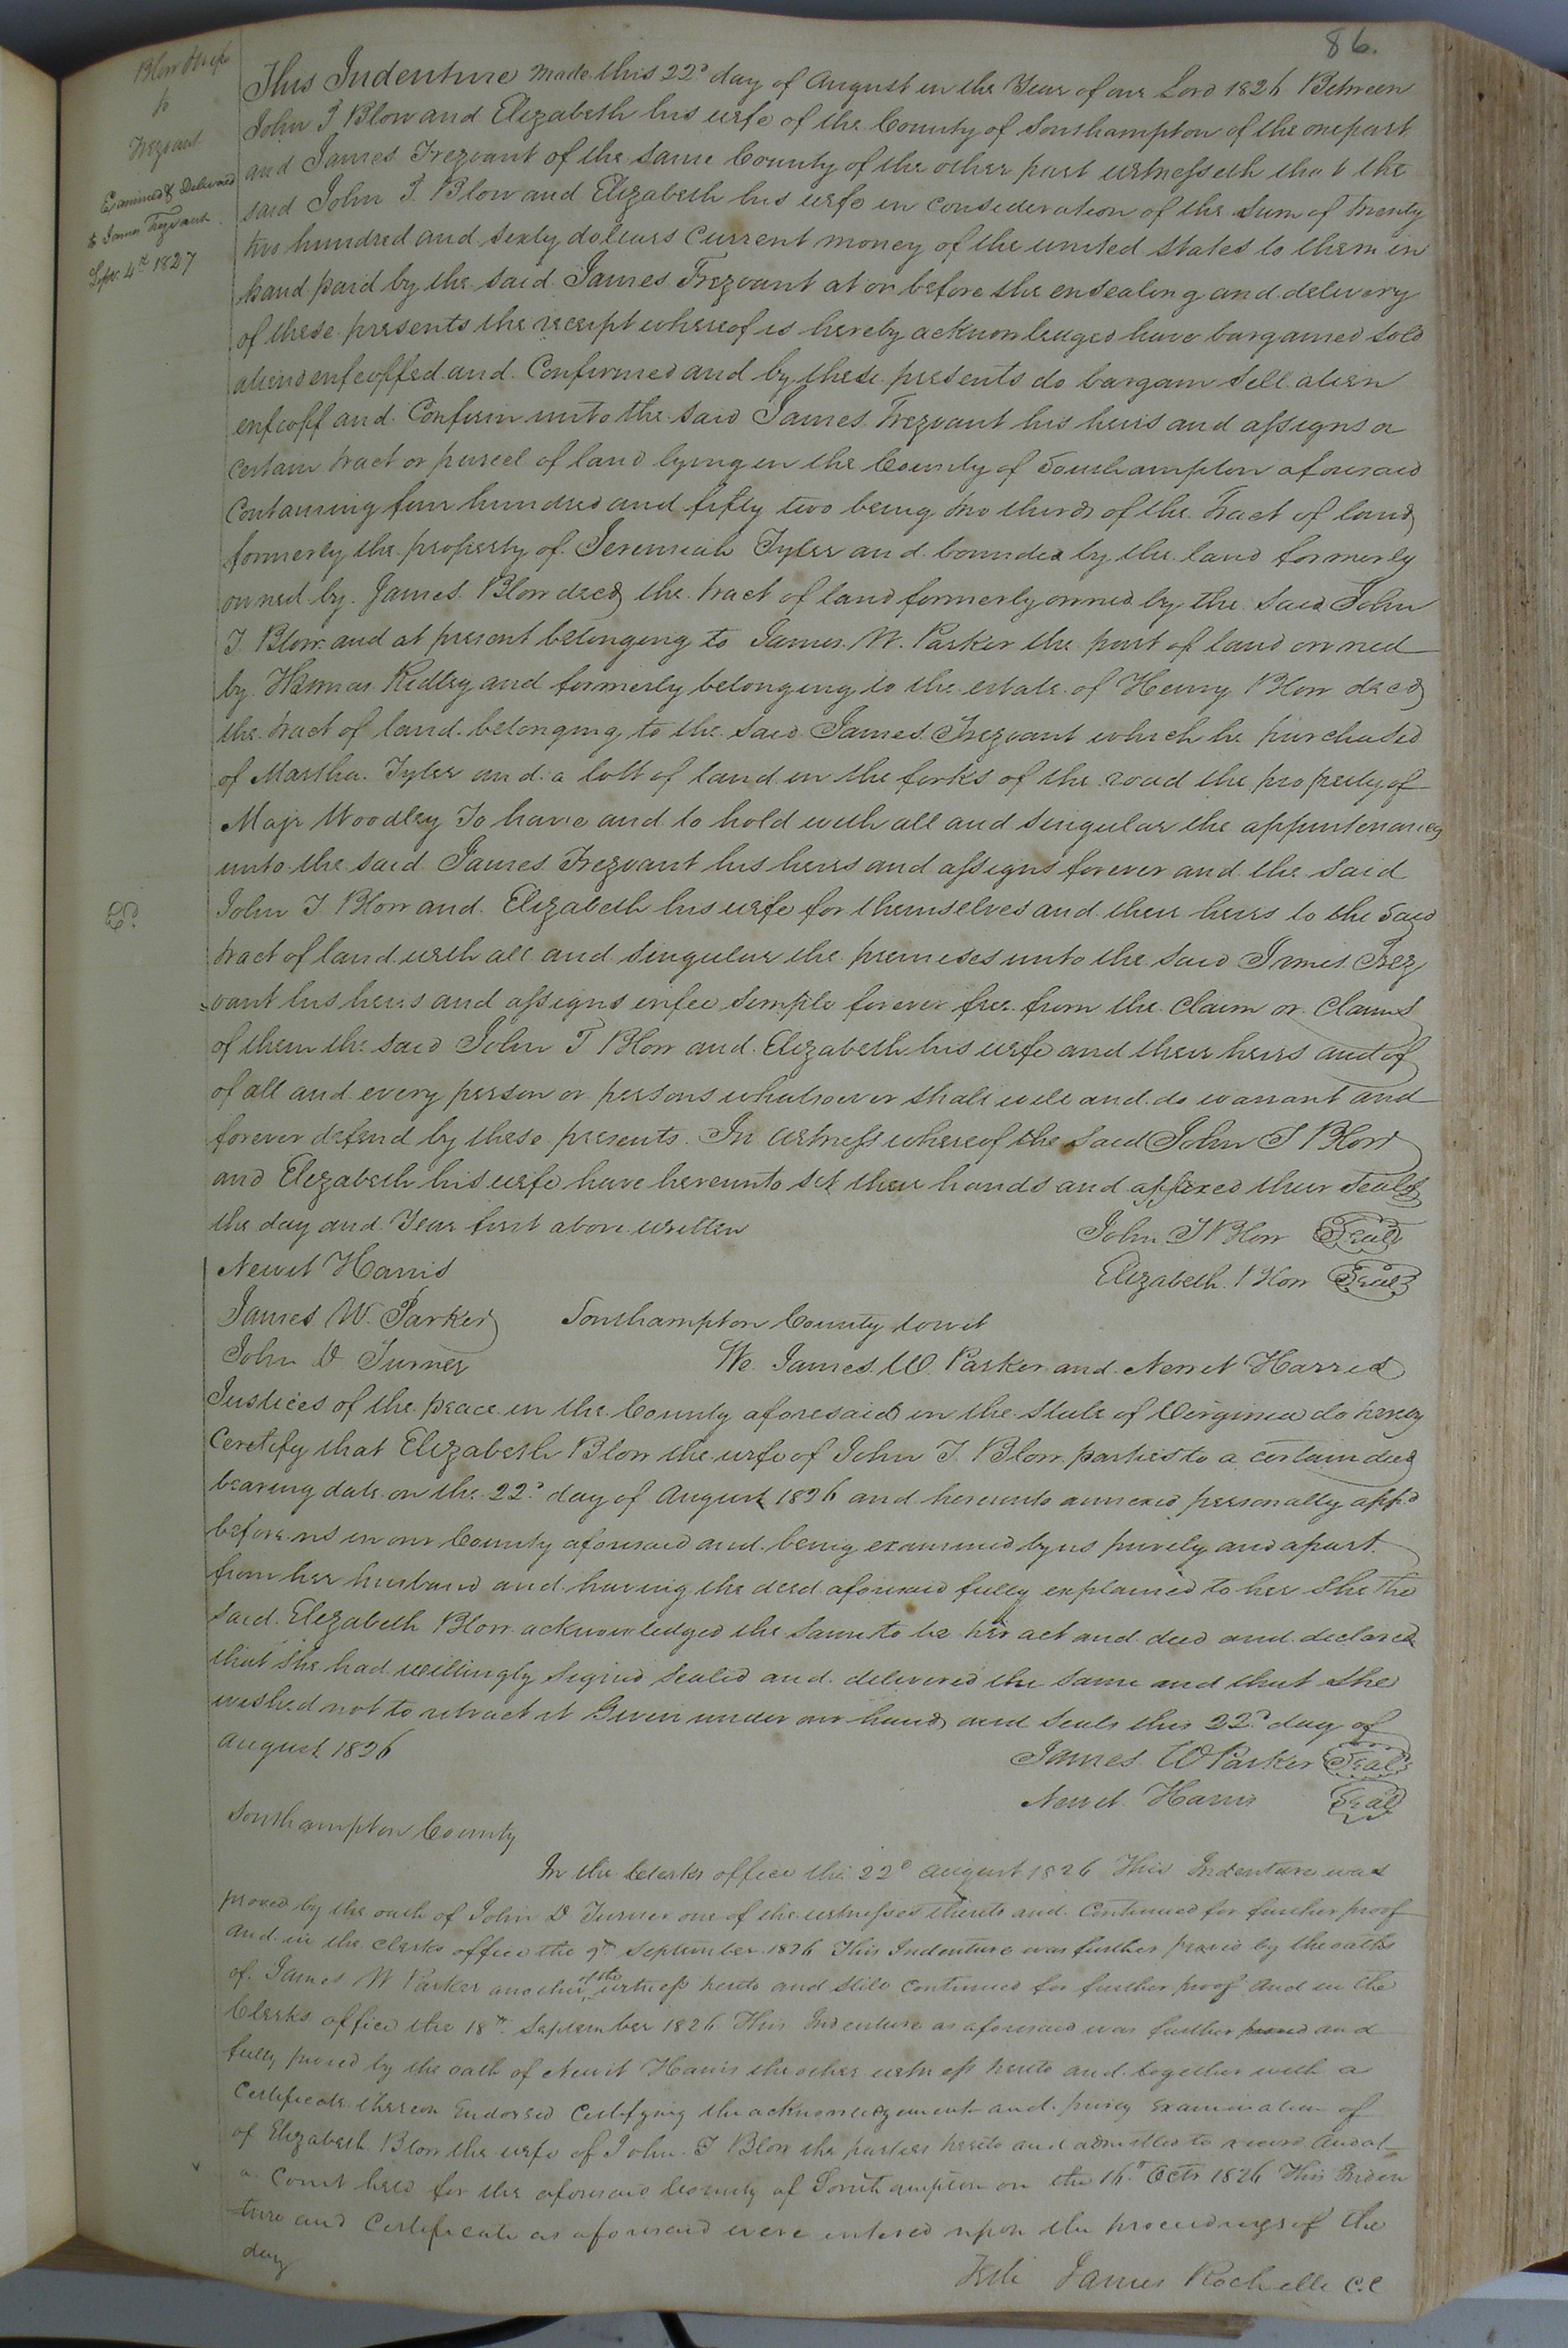 86.
Blow & wife
to
Trezvant
Examined & Delivered
to James Trezvant
Sepr. 4th 1827
This Indenture made this 22d day of August in the Year of our Lord 1826 Between
John T Blow and Elizabeth his wife of the County of Southampton of the one part
and James Trezvant of the same County of the other part witnesseth that the
said John T. Blow and Elizabeth his wife in consideration of the sum of twenty
two hundred and sixty dollars current money of the united states to them in
hand paid by the said James Trezvant at or before the ensealing and delivery
of these presents the receipt whereof is hereby acknowledged have bargained sold
aliend enfeoffed and Confirmed and by these presents do bargain sell alien
enfeoff and Confirm unto the said James Trezvant his heirs and assigns a
certain tract or parcel of land lying in the County of Southampton aforesaid
Containing four hundred and fifty two being two thirds of the Tract of land
formerly the property of Jeremiah Tyler and bounded by the land formerly
owned by James Blow decd the tract of land formerly owned by the said John
T. Blow and at present belonging to James W. Parker the part of land owned
by Thomas Ridley and formerly belonging to the estate of Henry Blow decd
the tract of land belonging to the said James Trezvant which he purchased
of Martha Tyler and a lott of land in the forks of the road the property of
Majr Woodley To have and to hold with all and singular the appurtenances
unto the said James Trezvant his heirs and assigns forever and the said
John T. Blow and Elizabeth his wife for themselves and their heirs to the said
tract of land with all and singular the premises unto the said James Trez
=vant his heirs and assigns in fee simple forever free from the claim or claims
of them the said John T Blow and Elizabeth his wife and their heirs and of
of all and every person or persons whatsoever shall will and do warrant and
forever defend by these presents. In witness whereof the said John T Blow
and Elizabeth his wife have hereunto set their hands and affixed their seals
the day and Year first above written John T Blow Seal
Newit Harris Elizabeth Blow Seal
James W. Parker Southampton County towit
John D Turner We James W. Parker and Newit Harris
Justices of the peace in the County aforesaid in the State of Virginia do hereby
Ceretify that Elizabeth Blow the wife of John T. Blow parties to a certain deed
bearing date on the 22d day of August 1826 and hereunto annexed personally appd
before us in our County aforesaid and being examined by us privily and apart
from her husband and having the deed aforesaid fully explained to her She the
said Elizabeth Blow acknowledged the same to be her act and deed and declared
that she had willingly signed sealed and delivered the same and that she
wished not to retract it Given under our hands and seals this 22d day of
August 1826 James W Parker Seal
Newit Harris Seal
Southampton County
In the Clerks office the 22d August 1826 This Indenture was
proved by the oath of John D Turner one of the witnesses thereto and Continued for further proof
and in the clerks office the 9th September 1826 This Indenture was further proved by the oaths
of James W Parker another of the witness hereto and still continued for further proof And in the
Clerks office the 18th September 1826 This Indenture as aforesaid was further proved and
fully proved by the oath of Newit Harris the other witness hereto and together with a
Certificate thereon Endorsed Certifying the acknowledgement and privy Examination of
of Elizabeth Blow the wife of John T Blow the parties hereto and admitted to record And at
a Court held for the aforesaid County of Southampton on the 16th Octr 1826 This Inden
ture and Certificate as aforesaid were entered upon the proceedings of the
day
Teste James Rochelle C.C